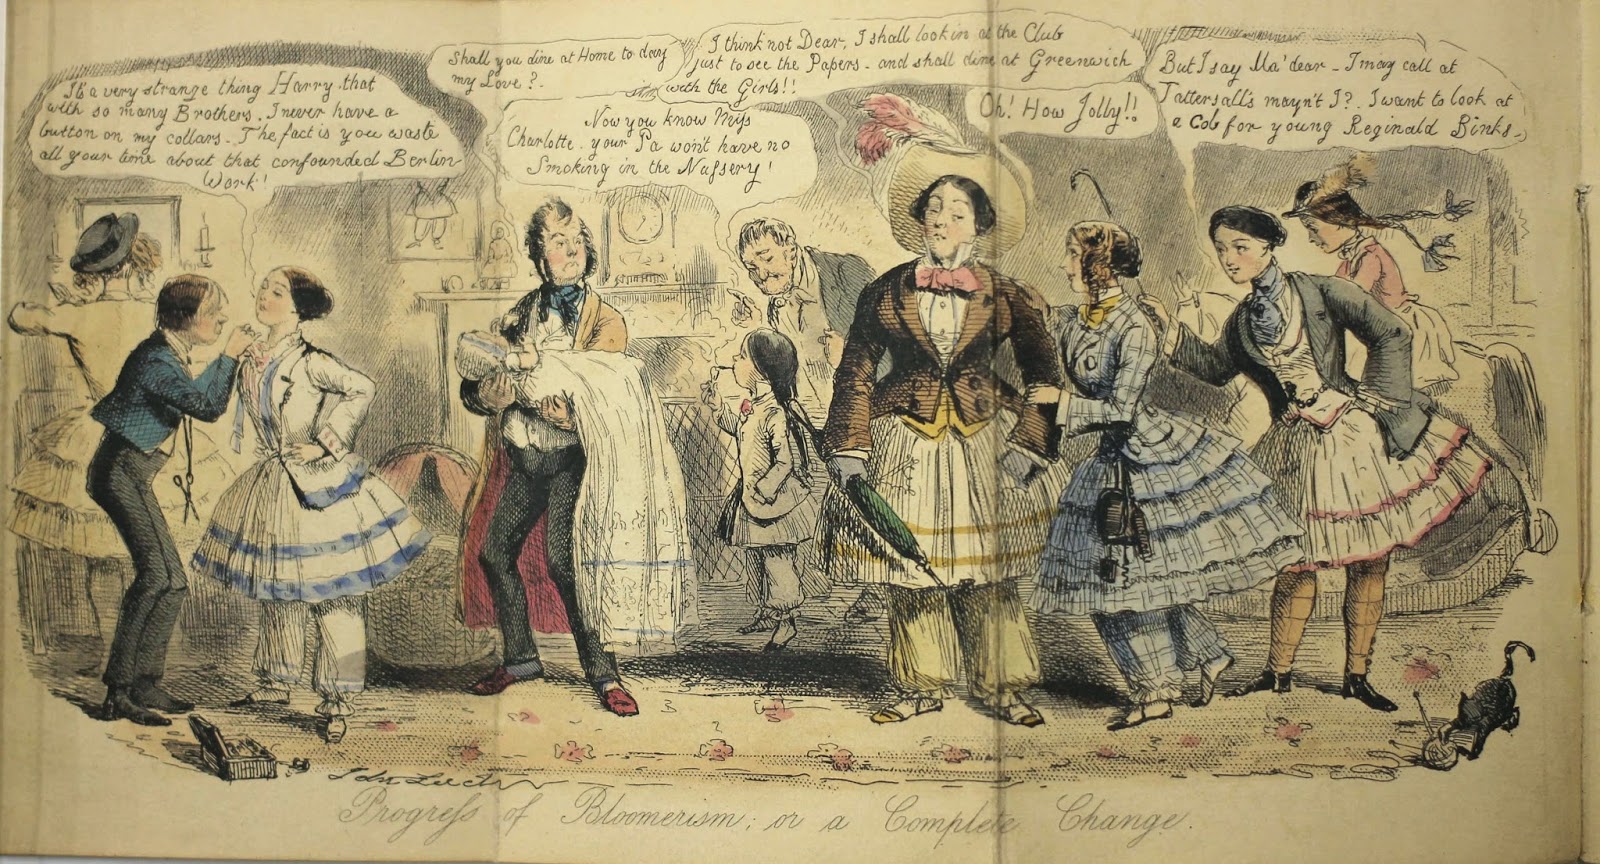 It's a very strange thing Harry that
with so many Brothers. I never have a
button on my collars. The fact is you waste
all your time about that confounded Berlin
Work!
Shall you dine at Home to day
my Love?
I think not Dear, I shall look in at the Club
just to see the Papers - and shall dine at Greenwich
with the Girls!!
Now you know Miss
Charlotte. your Pa won't have no
Smoking in the Nursery!
Oh! How Jolly!!
But I say Ma' dear - I may call at
Tattersall's mayn't I? I want to look at
a Cob for young Reginald Binks -
John Leech
Progress of Bloomerism; or a Complete Change.